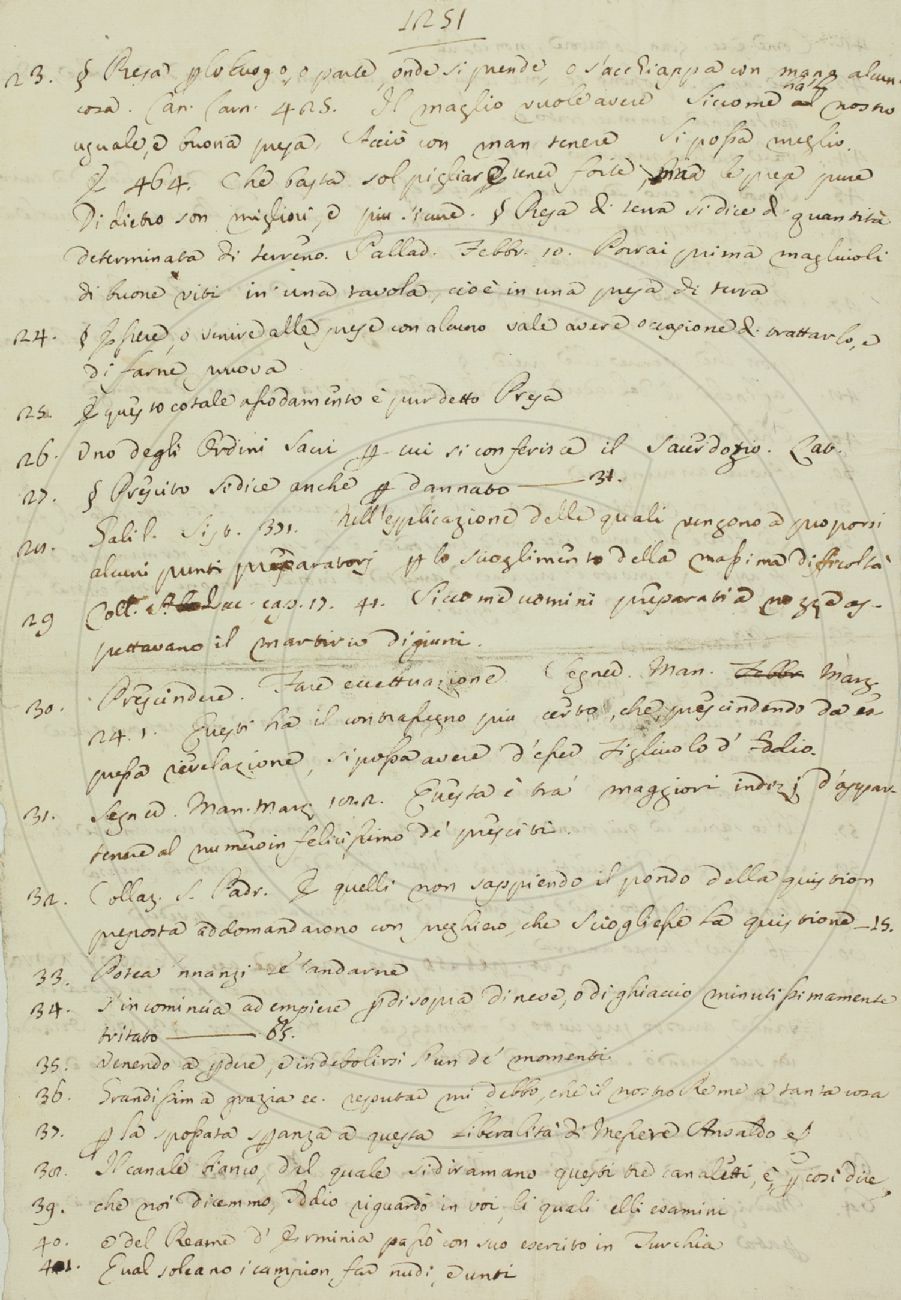 1251
23. § Presa p lo luogo, o parte, onde si prende, o s'acchiappa con mano alcuna
cosa. Can. Carn. 425. Il maglio vuole avere siccome al naso nostro
uguale, e buona presa, Acciò con man tenere si possa meglio.
E 464. Che basta sol pigliar e tener forte, ma le prese pure
Di dietro son migliori, e più sicure. § Presa di terra si dice di quantità
determinata di terreno. Pallad. Febbr. 10. Porrai prima magliuoli
di buone viti in una tavola, cioè in una presa di terra
24. § Essere, o venire alle prese con alcuno vale avere occasione di trattarlo, e
di farne pruova
25. E questo cotale assodamento è pur detto Presa
26. Uno degli Ordini Sacri p cui si conferisce il Sacerdozio. Lat.
27. § Prescito si dice anche p dannato —— 31.
28. Galil. Sist. 391. Nell'esplicazione delle quali vengono a proporsi
alcuni punti preparatorj p lo scioglimento della massima difficoltà
29 Coll. Ab. Isac. cap. 17. 41. Siccome uomini preparati a nozze as-
pettavano il martirio digiuni.
30. Prescindere. Fare eccettuazione. Segner. Man. Febbr. Marz.
24. 1. Questi ha il contrassegno più certo, che prescindendo da es-
pressa revelazione, si possa avere d'esser Figliuolo d' Iddio.
31. Segner. Man. Marz. 12. 2. Questa è tra' maggiori indizj d'appar-
tenere al numero infelicissimo de' presciti.
32. Collaz. S. Padr. E quelli non sappiendo il pondo della quistion
preposta addomandarono con preghiero, che sciogliesse la quistione —15.
33. Potea 'nnanzi a andarne
34. S'incomincia ad empiere p di sopra di neve, o di ghiaccio minutissimamente
tritato —— 65.
35. Venendo a pdere, e indebolirsi l'un de' momenti
36. Grandissima grazia ec. reputar mi debbo, che il nostro Re me a tanta cosa
37. p la spossata spanza a questa liberalità di Messere Ansaldo ec
38. Il canale bianco, dal quale si diramano questi tre canaletti, è, p così dire,
39. che noi dicemmo, Iddio riguardò in voi, li quali elli esamini
40. e del Reame d' Erminia passò con suo esercito in Turchia
41. Qual soleano i campion far nudi, e unti